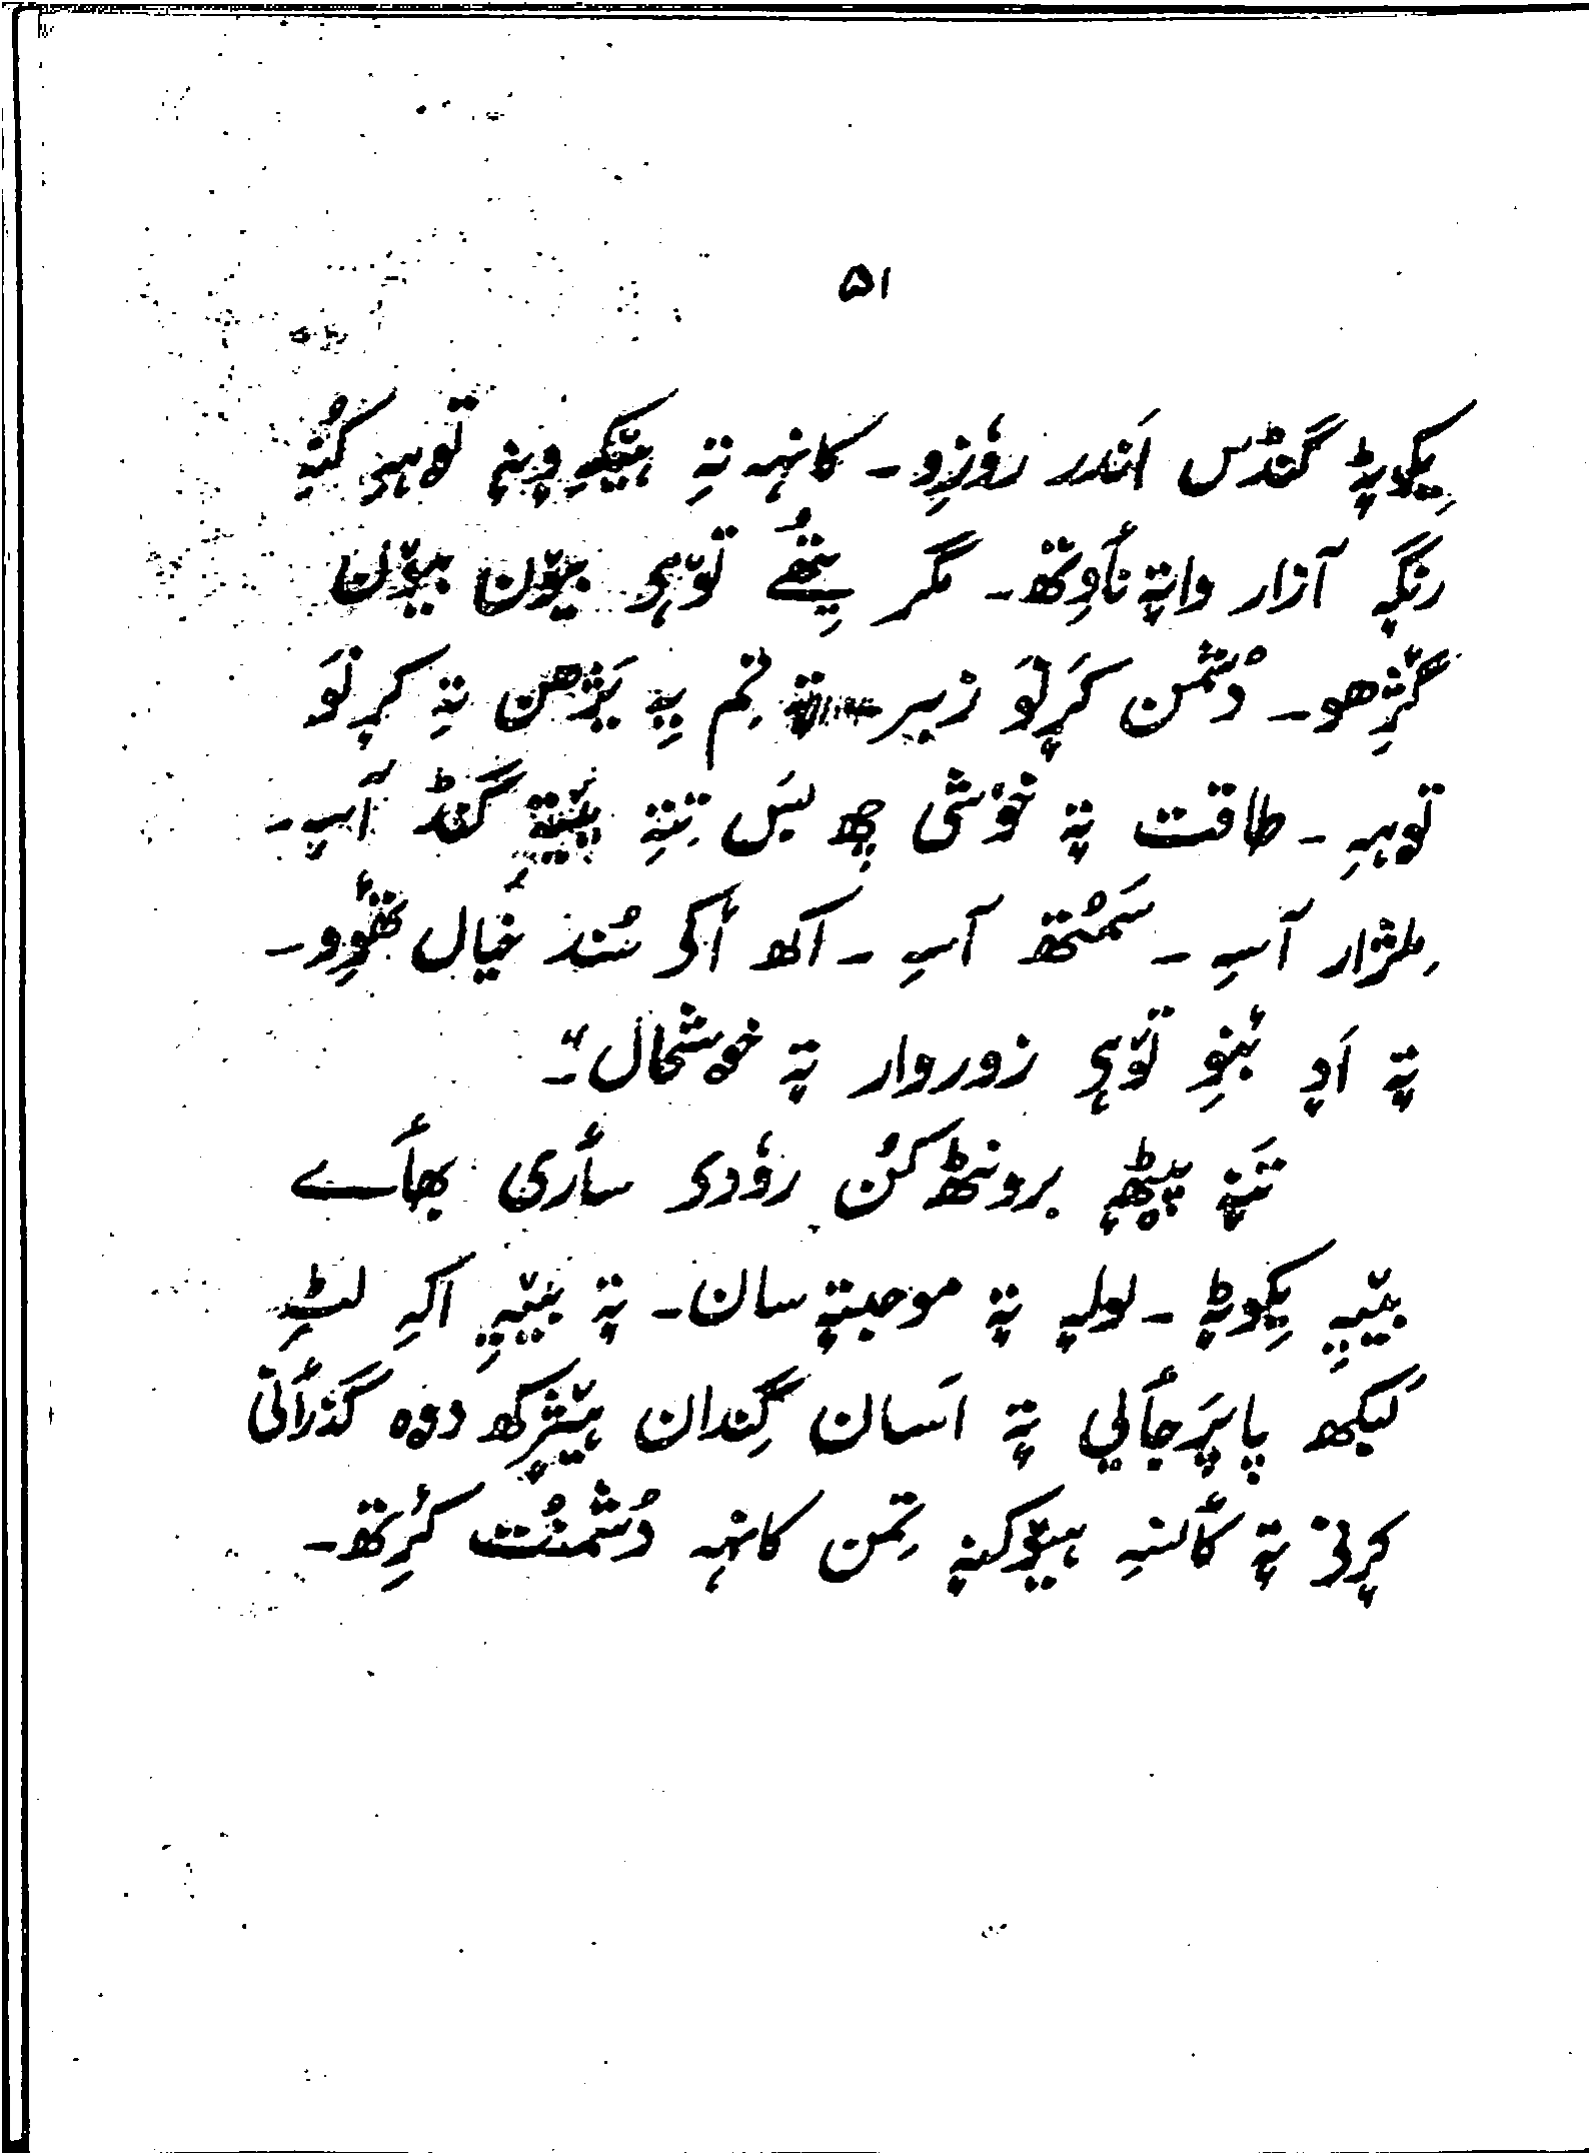 ۵۱
یِکوٹِہ گنڈس اَندر روٗزِو۔ کانٛہہ تہِ ہیٚکہِ وٕنہِ توٚہہِ کُنہِ
رنگہٕ آزار واتہٕ نٲوِتھ۔ مگر یِتھُے توٚہی بیوٚن بیوٚن
گٔژھِو۔ دُشمن کَرٕنَو زیر تہٕ تِم یِہ یَژھن تہِ کرٕنَو
توہہِ۔ طاقت تہٕ خۄشی چھِ بَس تِتہِ ییٚتہِ گَنڈ آسہِ۔
مِلژار آسہِ۔ سَمُتھ آسہِ۔ اکھ أکی سُند خیال تھٔوِو۔
تہٕ اَدٕ بٔنِو توٚہی زوروار تہٕ خوشحال"۔
تَنہٕ پیٹھہٕ برونٹھ کُن روٗدی سٲری بھٲے
بیٚیہِ یِکوٹہٕ۔ لولہٕ تہٕ موحبتہٕ سان۔ تہٕ بیٚیہِ اکہِ لٹہِ
لَیکھ پاپَرجٲلی تہٕ اَسان گِندان ہیٚژٕکھ دۄہ گذرٲنی
کرٕنی تہٕ کٲنسہِ ہیوٚکنہٕ تِمن کانٛہہ دُشمنُت کٔرِتھ۔